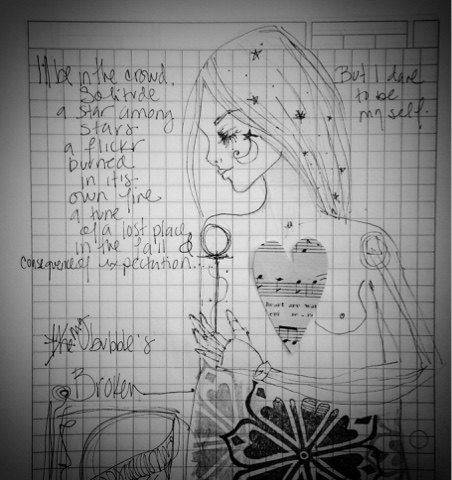 I'll be in the crowd.
Solitude
a star among
stars
a flickr
burned
in it's
own fire
a tune
of a lost place
in the fall &
consequence of expectation...
But I dare
to be
myself.
heart are wai
the bubble's
Broken